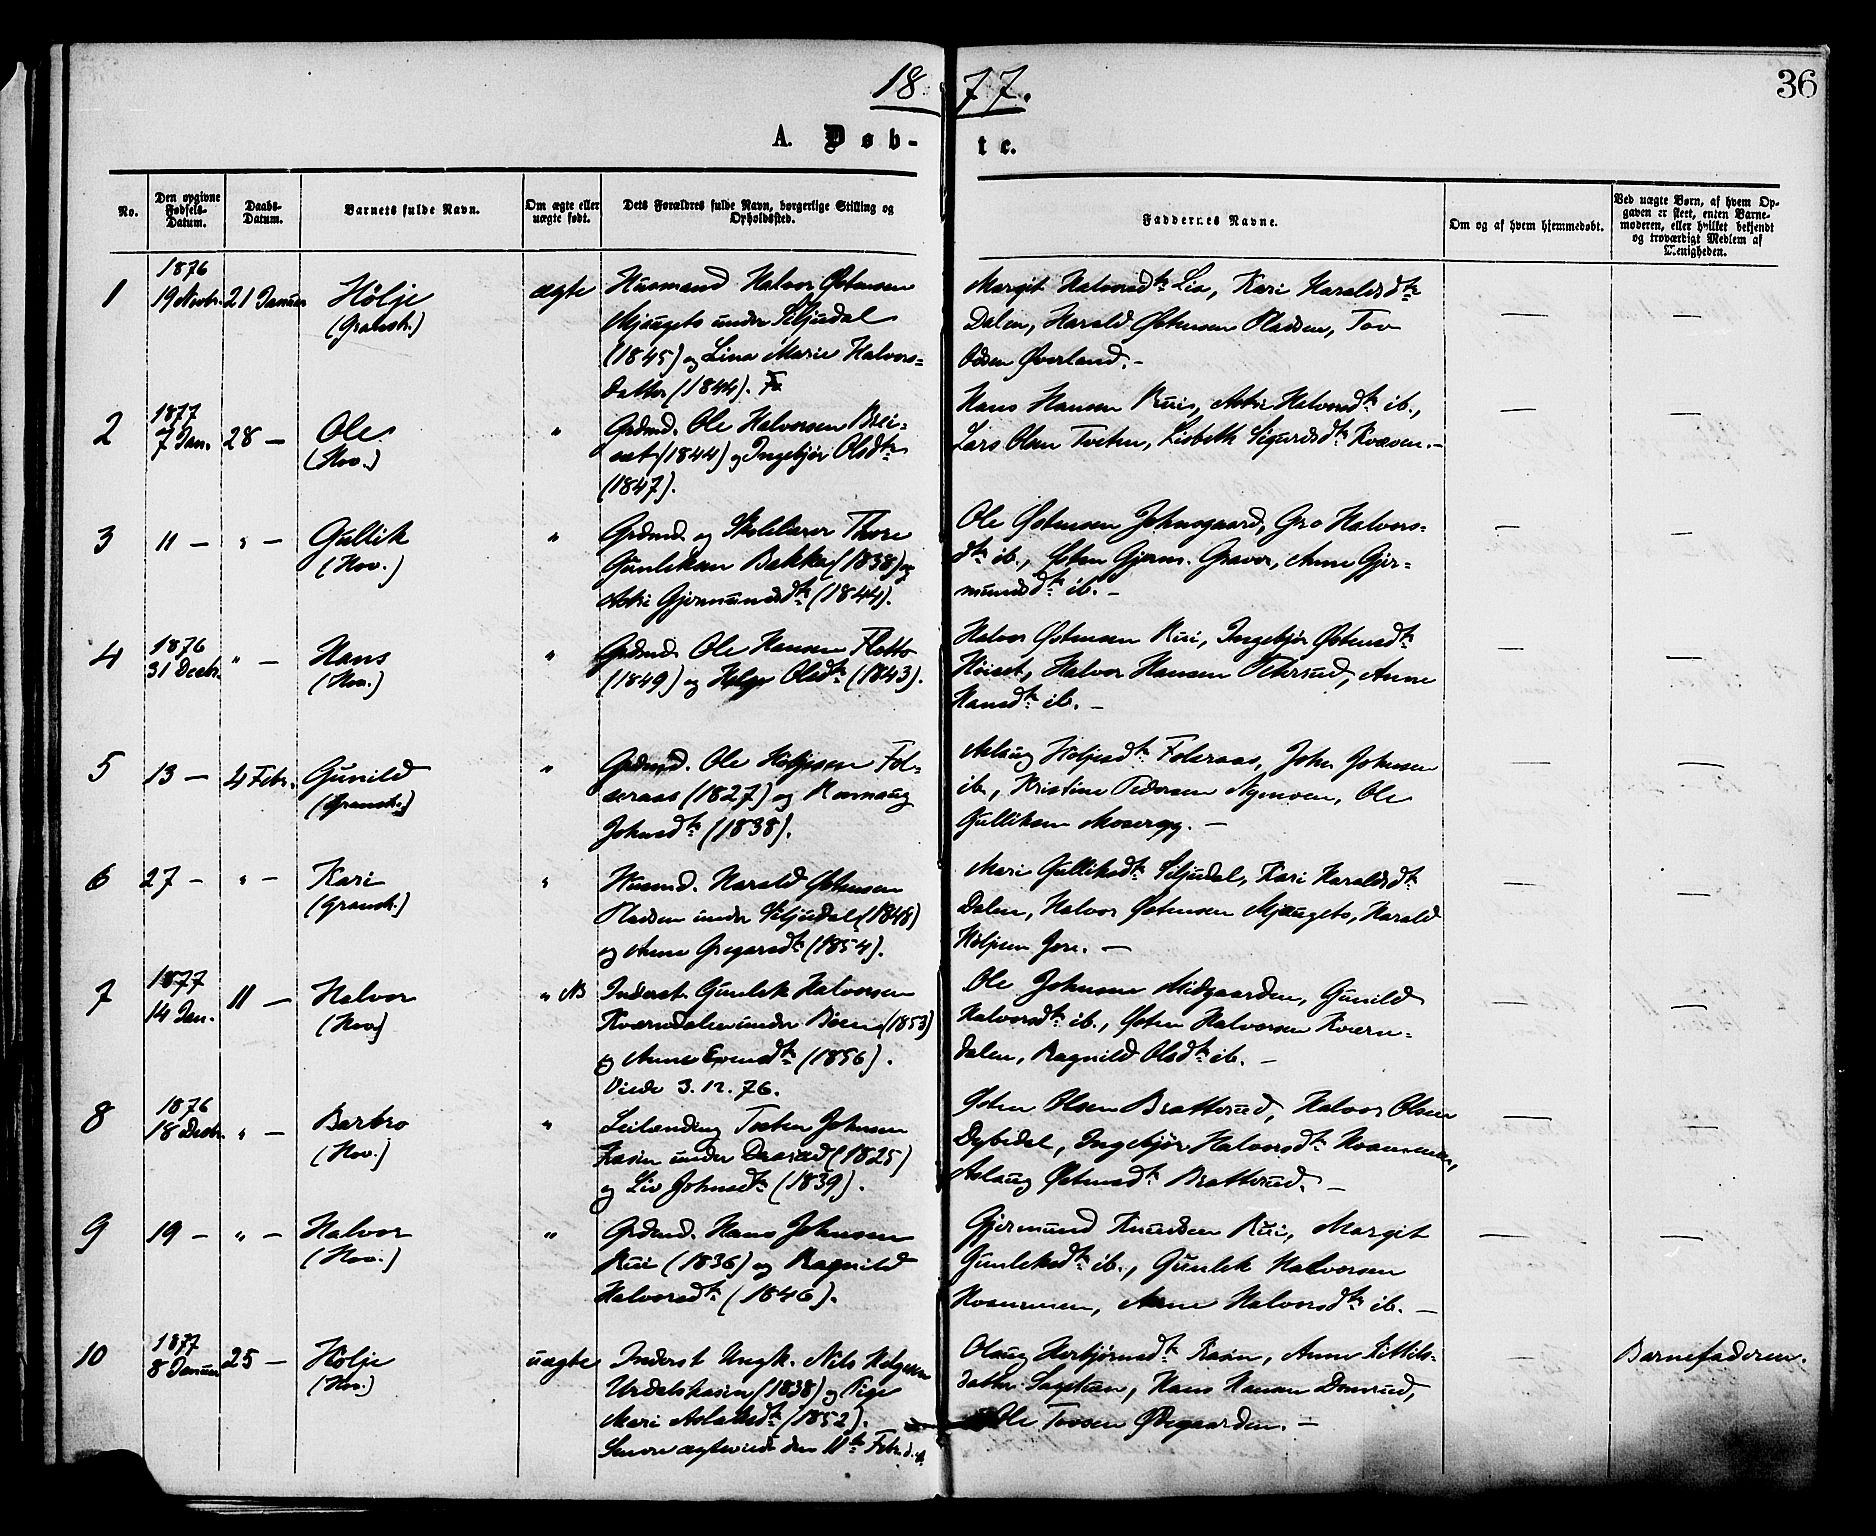 1877.
36
A. Døbte.
No.
Den opgivne Fødsels-Datum.
Daabs-Datum.
Barnets fulde Navn.
Om ægte eller uægte født.
Dets Forældres fulde Navn, borgerlige Stilling og Opholdssted.
Faddernes Navne.
Om og af hvem hjemmedøbt.
Ved uægte Børn, af hvem Opgaven er skeet, enten Barnemoderen, eller hvilket bekjendt og troværdigt Medlem af Menigheden.
1
1876
19 Novbr.
21 Januar
Hölje
(Gransh.)
ægte
Husmand Halvor Østensen
Mjaugets under Siljudal
(1845) og Lina Marie Halvors=
datter (1844).
Margit Halvorsdtr Lia, Kari Haraldsdtr
Dalen, Harald Østensen Pladsen, Tov
Odsen Øverland. -
—
—
2
1877
7 Jan.
28 —
Ole
(Hov.)
"
Grdmd. Ole Halvorsen Brei-
sat (1844) og Ingebjør Olsdtr
(1847).
Hans Hansen Rui, Astri Halvorsdtr ib.,
Lars Olsen Tveten, Lisbeth Sigurdsdtr Kvæven. -
—
—
3
11 —
" —
Gullik
(Hov.)
"
Grdmd. og Skolelærer Thore
Gunleksen Bakka (1838) og
Astri Gjermundsdtr (1844).
Ole Østensen Johnsgaard, Gro Halvors-
dtr ib., Østen Gjerm. Graver, Anne Gjer-
mundsdtr ib. -
—
—
4
1876
31 Decbr.
" —
Hans
(Hov.)
"
Grdmd. Ole Hansen Flatto
(1849) og Helge Olsdtr (1843).
Halvor Østensen Rui, Ingebjør Østensdtr
Høiset, Halvor Hansen, Anne
Hansdtr ib. -
—
—
5
13 —
4 Febr.
Gunild
(Gransh.)
"
Grdmd. Ole Høljesen Fol-
seraas (1827) og Rannaug
Johnsdtr (1838).
Aslaug Høljesdtr Folseraas, John Johnsen
ib., Kristine Pedersen Nymoen, Ole
Gulliksen Moseroy. -
—
—
6
27 —
" —
Kari
(Gransh.)
"
Husmd. Harald Østensen
Pladsen under Siljudal (1848)
og Anne Gregarsdtr (1854).
Mari Gulliksdtr Siljudal, Kari Haraldsdtr
Dalen, Halvor Østensen Mjaugets, Harald
Høljesen Jore. -
—
—
7
1877
14 Jan.
11 —
Halvor
(Hov.)
" NB
Inderst Gunlek Halvorsen
Kværndalen under Bøen (1853)
og Anne Evensdtr (1856).
Viede 3.12.76.
Ole Johnsen Midgaarden, Gunild
Halvorsdtr ib., Østen Halvorsen Kværn-
dalen, Ragnild Olsdtr ib. -
—
—
8
1876
18 Decbr.
" —
Barbro
(Hov.)
"
Leilænding Tosten Johnsen
Kasin under Daaraad (1825)
og Liv Johnsdtr (1839).
Østen Olsen Bratterud, Halvor Olsen
Dybedal, Ingebjør Halvorsdtr Kvammen,
Aslaug Østensdtr Bratterud. -
—
—
9
19 —
" —
Halvor
(Hov.)
"
Grdmd. Hans Johnsen
Rui (1836) og Ragnild
Halvorsdtr (1846).
Gjermund Knudsen Rui, Margit
Gunleksdtr ib., Gunlek Halvorsen
Kvammen, Anne Halvorsdtr ib. -
—
—
10
1877
8 Januar
25 —
Hölje
(Hov.)
uægte
Inderst Ungk. Nils Helgesen
Urdalskasin (1838) og Pige
Mari Aslaksdtr (1852).
Senere ægteviede den 11te Febr. d. A.
Olaug Herbjørnsdtr Kasin, Anne Kittils-
datter, Hans Hansen Domrud,
Ole Tovsen Øvegaarden. -
—
Barnefaderen.